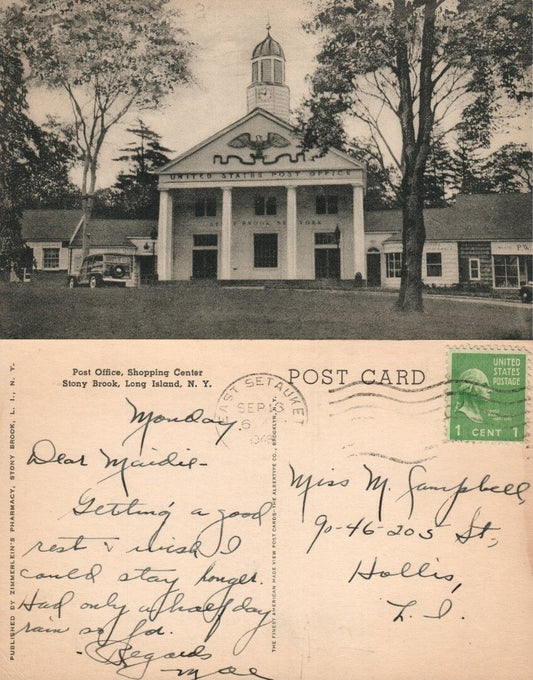 UNITED STATES POST OFFICE
STONY BROOK NEW YORK
P.W.
Post Office, Shopping Center
Stony Brook, Long Island, N. Y.
POST CARD
UNITED
STATES
POSTAGE
1 CENT 1
EAST SETAUKET
SEP 13
6
194
PUBLISHED BY ZIMMERLEIN'S PHARMACY, STONY BROOK, L. I., N. Y.
THE FINEST AMERICAN MADE VIEW POST CARDS - THE ALBERTYPE CO., BROOKLYN, N.Y.
Monday
Dear Maidie -
Getting a good
rest & wish I
could stay longer.
Had only a half day
rain so far.
Regards
Mae
Miss M. Campbell,
90-46-205 St.,
Hollis,
L. I.